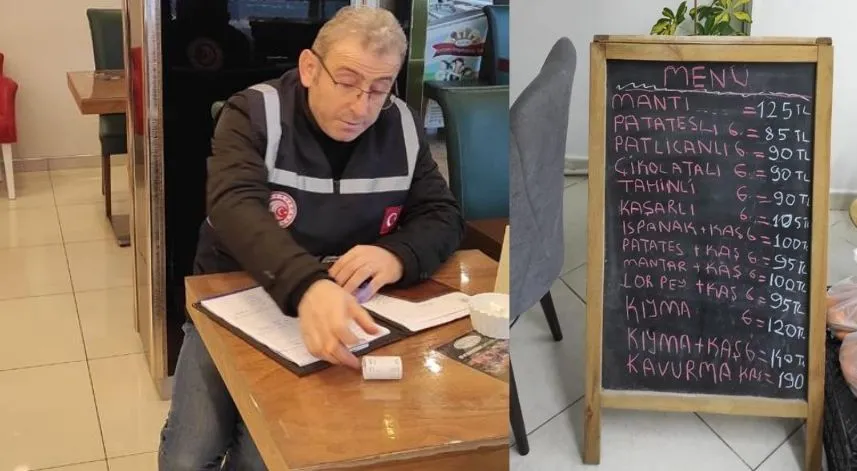 MENÜ
MANTI =125TL
PATATESLİ G. = 85TL
PATLICANLI G = 90TL
ÇİKOLATALI G. = 90TL
TAHİNLİ G. = 90TL
KAŞARLI G. =105TL
ISPANAK+KAŞ G =100TL
PATATES +KAŞ G = 95TL
MANTAR + KAŞ G =100TL
LOR PEY + KAŞ G = 95TL
KIYMA G =120TL
KIYMA+KAŞ G =140TL
KAVURMA KAŞ =190